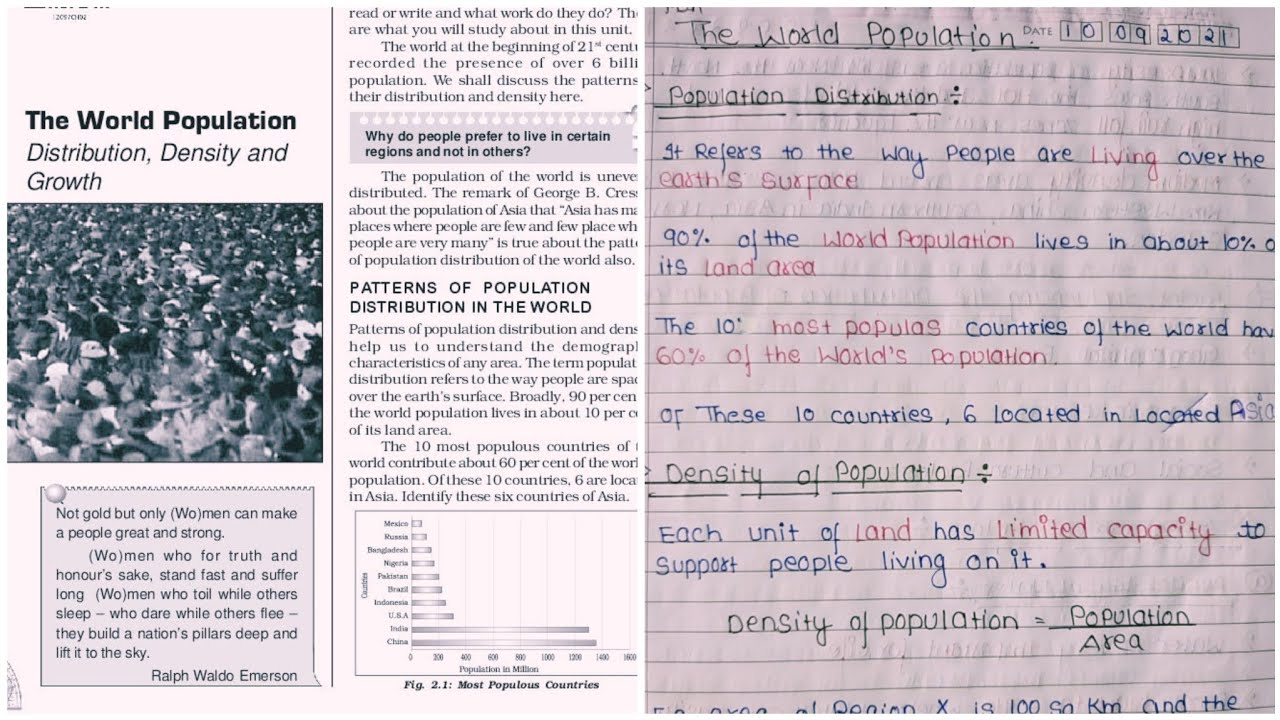 12097CH02
The World Population
Distribution, Density and
Growth
Not gold but only (Wo)men can make
a people great and strong.
(Wo)men who for truth and
honour's sake, stand fast and suffer
long (Wo)men who toil while others
sleep – who dare while others flee –
they build a nation's pillars deep and
lift it to the sky.
Ralph Waldo Emerson
read or write and what work do they do? Th
are what you will study about in this unit.
The world at the beginning of 21st centu
recorded the presence of over 6 billi
population. We shall discuss the patterns
their distribution and density here.
Why do people prefer to live in certain
regions and not in others?
The population of the world is uneve
distributed. The remark of George B. Cress
about the population of Asia that “Asia has ma
places where people are few and few place wh
people are very many” is true about the patte
of population distribution of the world also.
PATTERNS OF POPULATION
DISTRIBUTION IN THE WORLD
Patterns of population distribution and dens
help us to understand the demograp
characteristics of any area. The term populat
distribution refers to the way people are spac
over the earth's surface. Broadly, 90 per cen
the world population lives in about 10 per ce
of its land area.
The 10 most populous countries of t
world contribute about 60 per cent of the worl
population. Of these 10 countries, 6 are loca
in Asia. Identify these six countries of Asia.
Countries
Mexico
Russia
Bangladesh
Nigeria
Pakistan
Brazil
Indonesia
U.S.A
India
China
0 200 400 600 800 1000 1200 1400 1600
Population in Million
Fig. 2.1: Most Populous Countries
The World Population. DATE 10 09 2021
Population Distribution ÷
It Refers to the way People are Living over the
earth's surface
90% of the World Population lives in about 10% o
its land area
The 10: most populas countries of the world hav
60% of the World's Population.
Of These 10 countries, 6 located in Located Asia
Density of Population ÷
Each unit of Land has Limited capacity to
support people living on it.
Density of population = Population
Area
area of Region X is 100 Sq Km and the